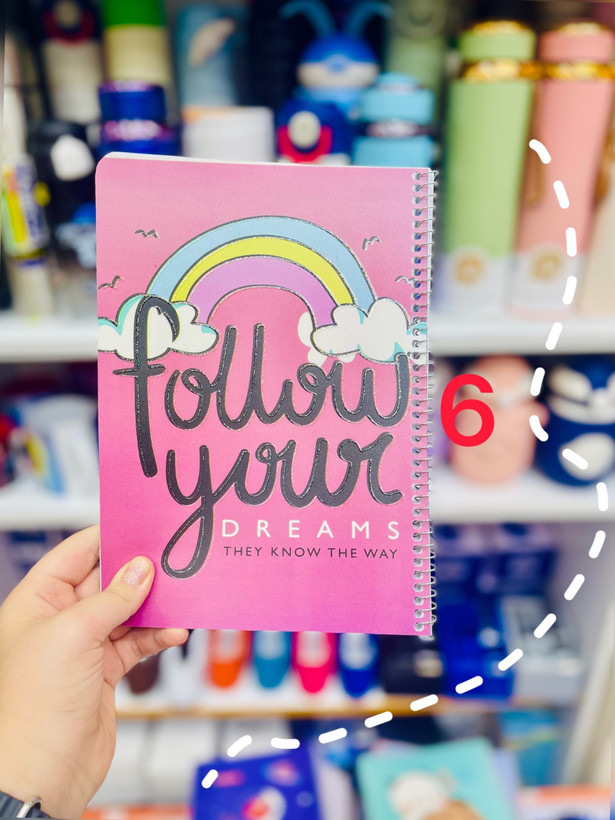 follow
your
DREAMS
THEY KNOW THE WAY
6